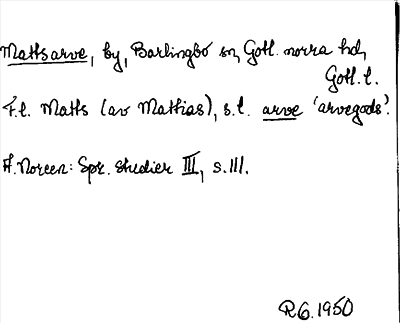 Mattsarve, by, Barlingbo sn, Gotl. norra hd,
Gotl. l.
F.l. Matts (av Mathias), s.l. arve 'arvegods'.
A. Noreen: Spr. studier III, s. 111.
RG. 1950